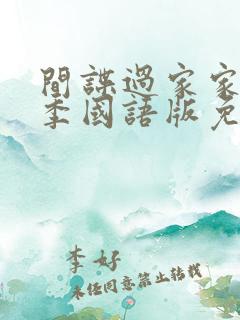 間諜過家家
季國語版免
李好
未经同意禁止转载